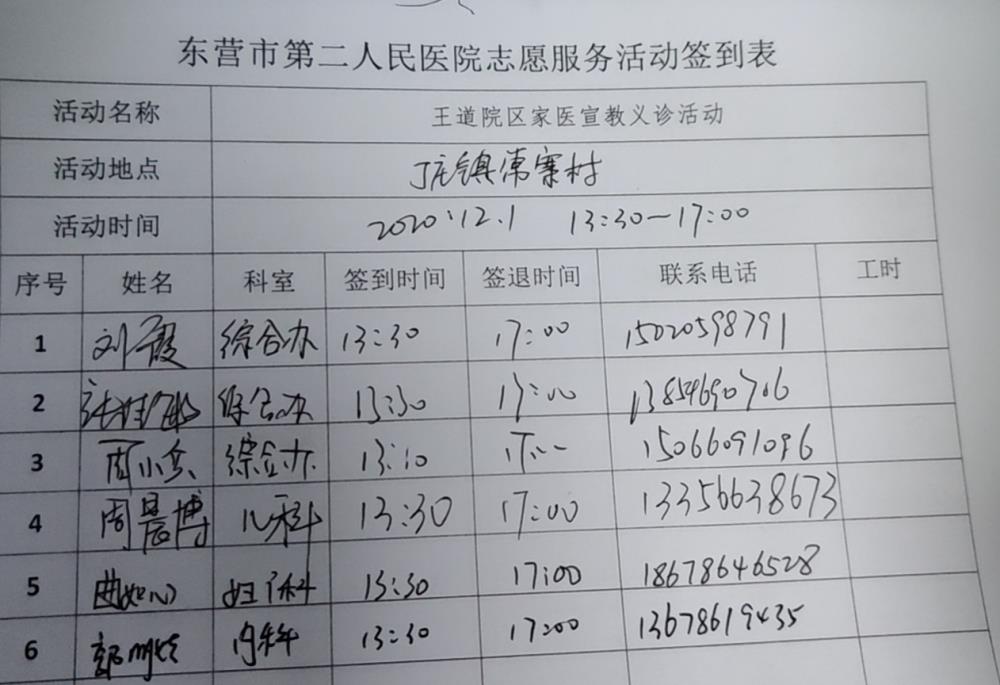 东营市第二人民医院志愿服务活动签到表
活动名称 王道院区家医宣教义诊活动
活动地点 丁庄镇韦寨村
活动时间 2020.12.1 13:30-17:00
序号 姓名 科室 签到时间 签退时间 联系电话 工时
1 刘霞 综合办 13:30 17:00 15020598791
2 综合办 13:30 17:00 13854690706
3 周小兵 综合办 13:10 15066091096
4 周晨博 儿科 13:30 17:00 13356638673
5 曲如心 妇产科 13:30 17:00 18678646528
6 郭 内科 13:30 17:00 13678619435